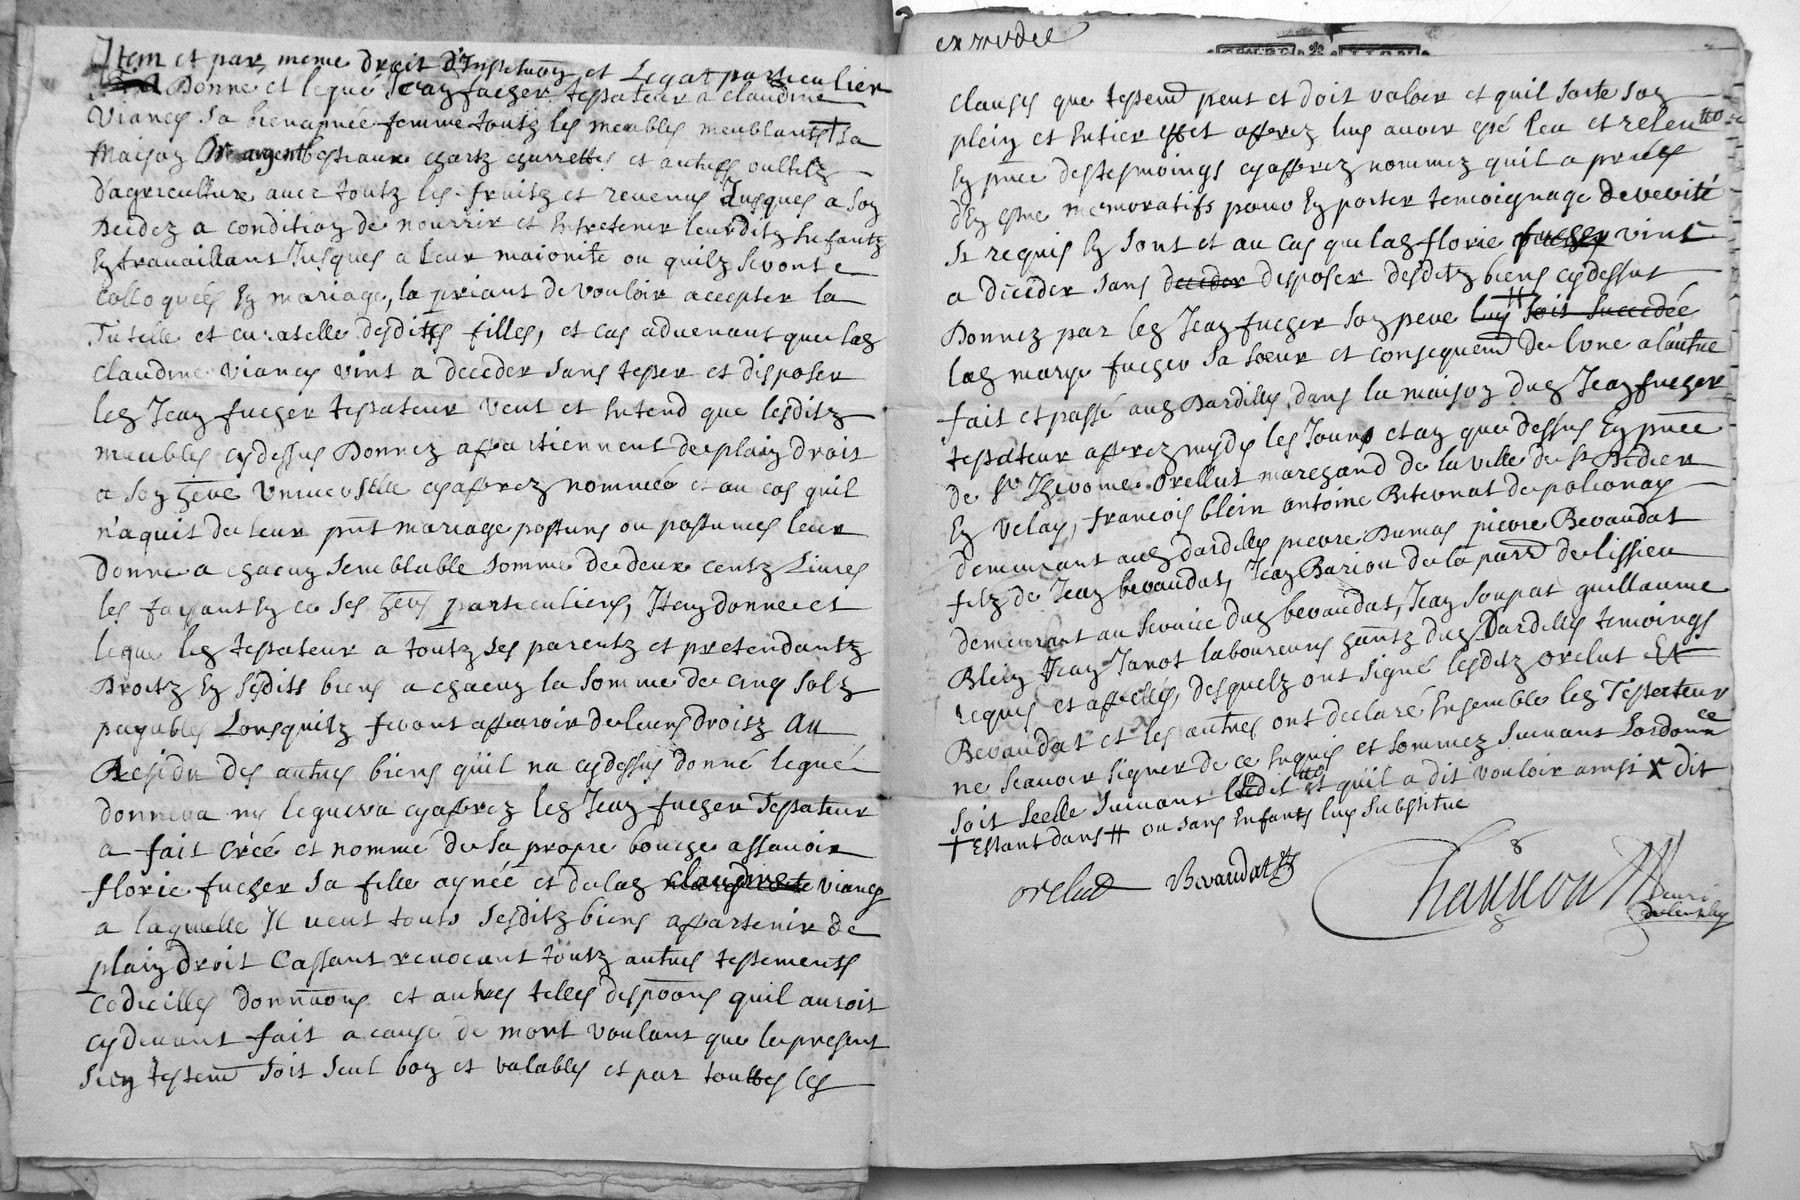 Item et par meme droit d'Instituõn et Legat particulier
Donne et legue Jean fucher testateur a claudine
Viancy sa bien aymée femme toutz les meubles meublants † sa
maison Or argent bestiaux chartz charrettes et autres oultilz
d'agriculture avec toutz les fruitz et revenus Jusques a son
Decedz a condition de nourrir et Entretenir leursditz Enfantz
En travaillant Jusques a leur maiorite ou quilz seront
colloquées En mariage, la priant de vouloir accepter la
Tutelle et curatelle desdittes filles, et cas advenant que lad
claudine Viancy vint a deceder sans tester et disposer
led Jean fucher testateur veut et Entend que lesditz
meubles cydessus Donnez appartiennent de plain droit
a son here universelle cyapprez nommée et au cas quil
n'aquit de leur pnt mariage postums ou postumes leur
donne a chacun semblable somme de deux centz Livres
les faisant En ce ses hers particuliers, Item donne et
legue led testateur a toutz ses parentz et pretendantz
Droitz En sesdits biens a chacun la somme de cinq solz
payables Lorsquilz feront apparoir de leurs droitz Au
Residu des autres biens qu'il na cydessus donné legué
donnera ny leguera cyapprez led Jean fucher Testateur
a fait créé et nommé de sa propre bouche assavoir
florie fucher sa fille aynée et de lad claudine viancy
a laquelle Il veut touts sesditz biens appartenir de
plain droit Cassant revocant toutz autres testements
Codicilles donnaõns et autres telles dispõons quil auroit
cydevant fait a cause de mort voulant que le present
sien testemt soit seul bon et valables et par touttes les
clauses que testemt peut et doit valoir et quil sorte son
plein et Entier effet apprez luy avoir esté leu et releu
En pnce des tesmoings cyapprez nommez quil a priéz
d'En estre memoratifs pour En porter temoignage de verité
Si requis En sont et au cas que lad florie fucher vint
a decéder sans deceder disposer desditz biens cydessus
Donnez par led Jean fucher son pere luy # soit succedée
lad marye fucher sa soeur et consequemt de lune a l'autre
fait et passé aud Dardilly dans la maison dud Jean fucher
testateur apprez mydy les Jour et an que dessus En pnce
de sr Jherome Orellut marchand de la ville de St Didier
En velay, francois blein antoine Biternat de polionay
demeurant aud dardilly pierre Dumas pierre Bevaudat
filz de Jean bevaudat, Jean Bariou de la parr de lissieu
demeurant au service dud bevaudat, Jean soupat guillaume
Blein Jean Janot laboureurs hantz dud Dardilly temoings
requis et appelléz, desquelz ont signé lesditz orelut Et
Bevaudat et les autres ont declaré Ensemble led Testateur
ne scavoir signer de ce Enquis et sommez suivant Lordonnce
soit scelle suivant Ledit et quil a dit vouloir ainsi x dit
† Estant dans # ou sans Enfants luy substitue
orelut Bevaudat